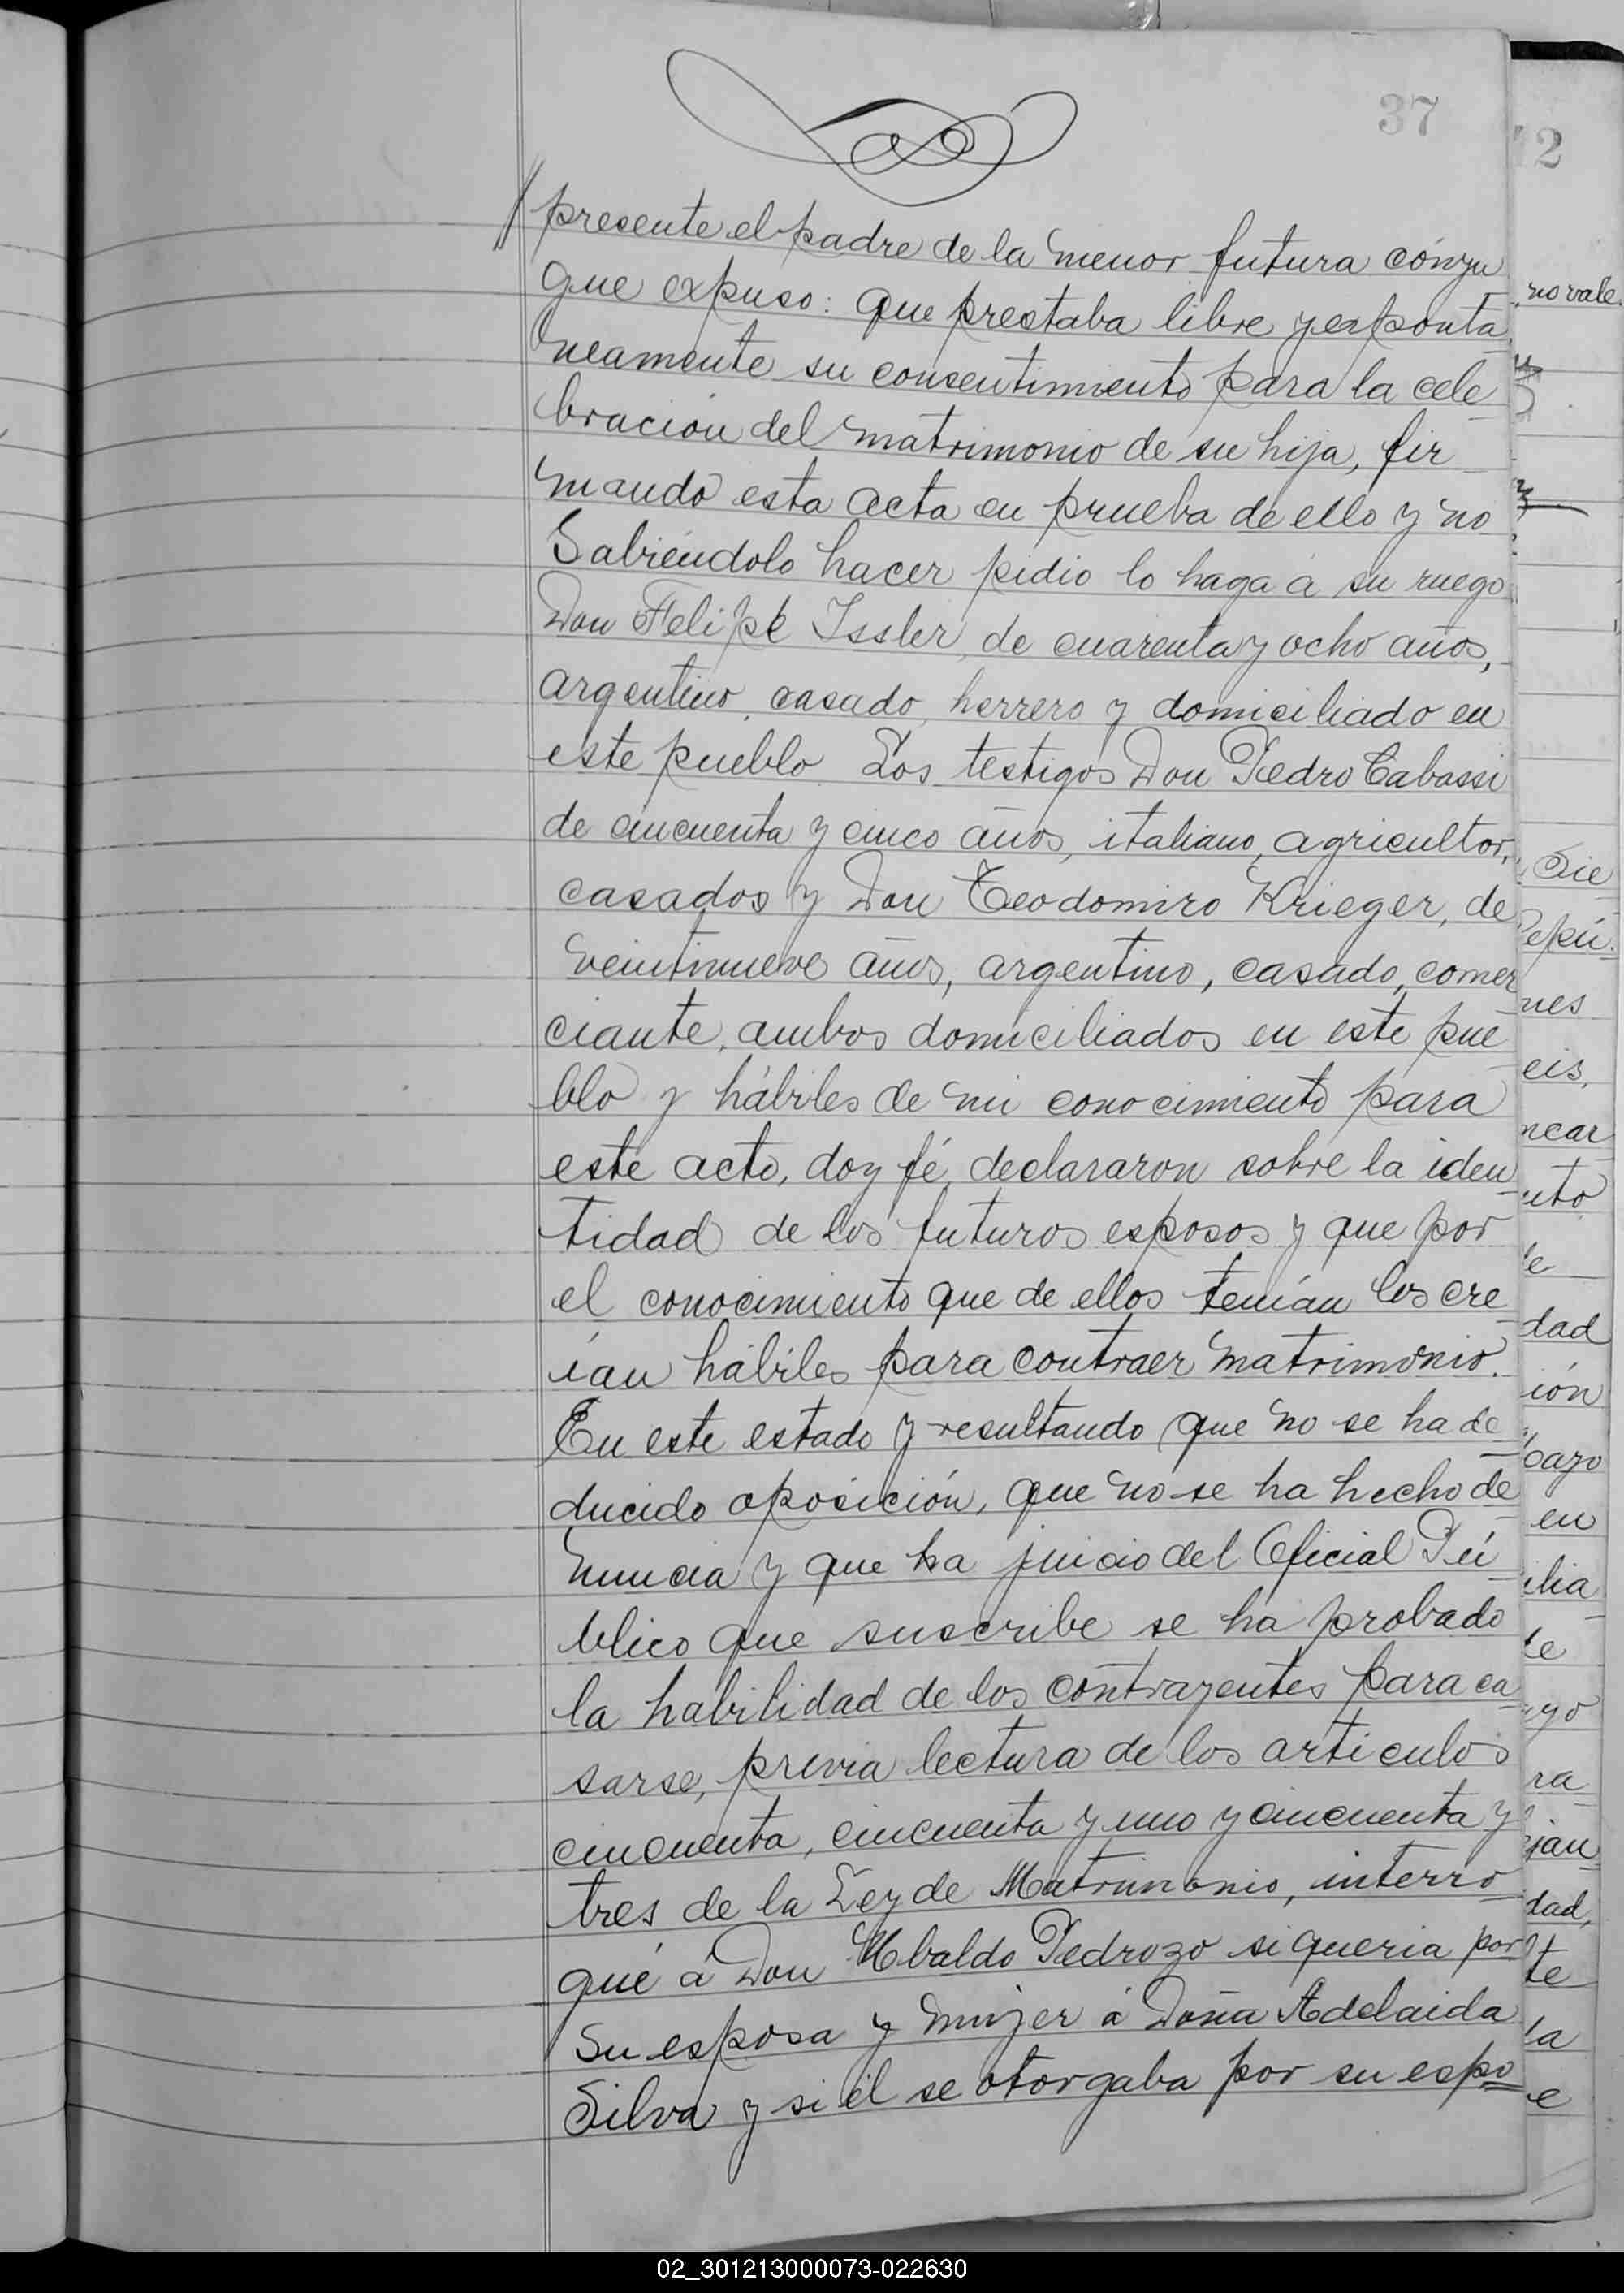 37
12
presente el padre de la menor futura cónyu
que expuso: que prestaba libre y exponta
neamente su consentimiento para la cele
bración del matrimonio de su hija, fir
mando esta acta en prueba de ello y no
Sabiéndolo hacer pidio lo haga á su ruego
Don Felipe Issler, de cuarenta y ocho años,
argentino, casado, herrero y domiciliado en
este pueblo Los testigos Don Pedro Cabassi
de cincuenta y cinco años, italiano, agricultor,
casados y Don Teodomiro Krieger, de
veintinueve años, argentino, casado, comer
ciante, ambos domiciliados en este pue
blo y hábiles de mi conocimiento para
este acto, doy fé, declararon sobre la iden
tidad de los futuros esposos y que por
el conocimiento que de ellos tenían los cre
ían hábiles para contraer matrimonio.
En este estado y resultando que no se ha de
ducido oposición, que no se ha hecho de
nuncia y que ha juicio del Oficial Pú
blico que suscribe se ha probado
la habilidad de los contrayentes para ca
sarse, previa lectura de los artículos
cincuenta, cincuenta y uno y cincuenta y
tres de la Ley de Matrimonio, interro
gué á Don Ubaldo Pedrozo si queria por
su esposa y mujer á Doña Adelaida
Silva y si él se otorgaba por su espo
no vale.
Sie
Repú
nes
eis,
ncar
nto
le
dad
ión
bazo
en
ilia
te
yo
ra
jan
dad,
te
la
e
02_301213000073-022630